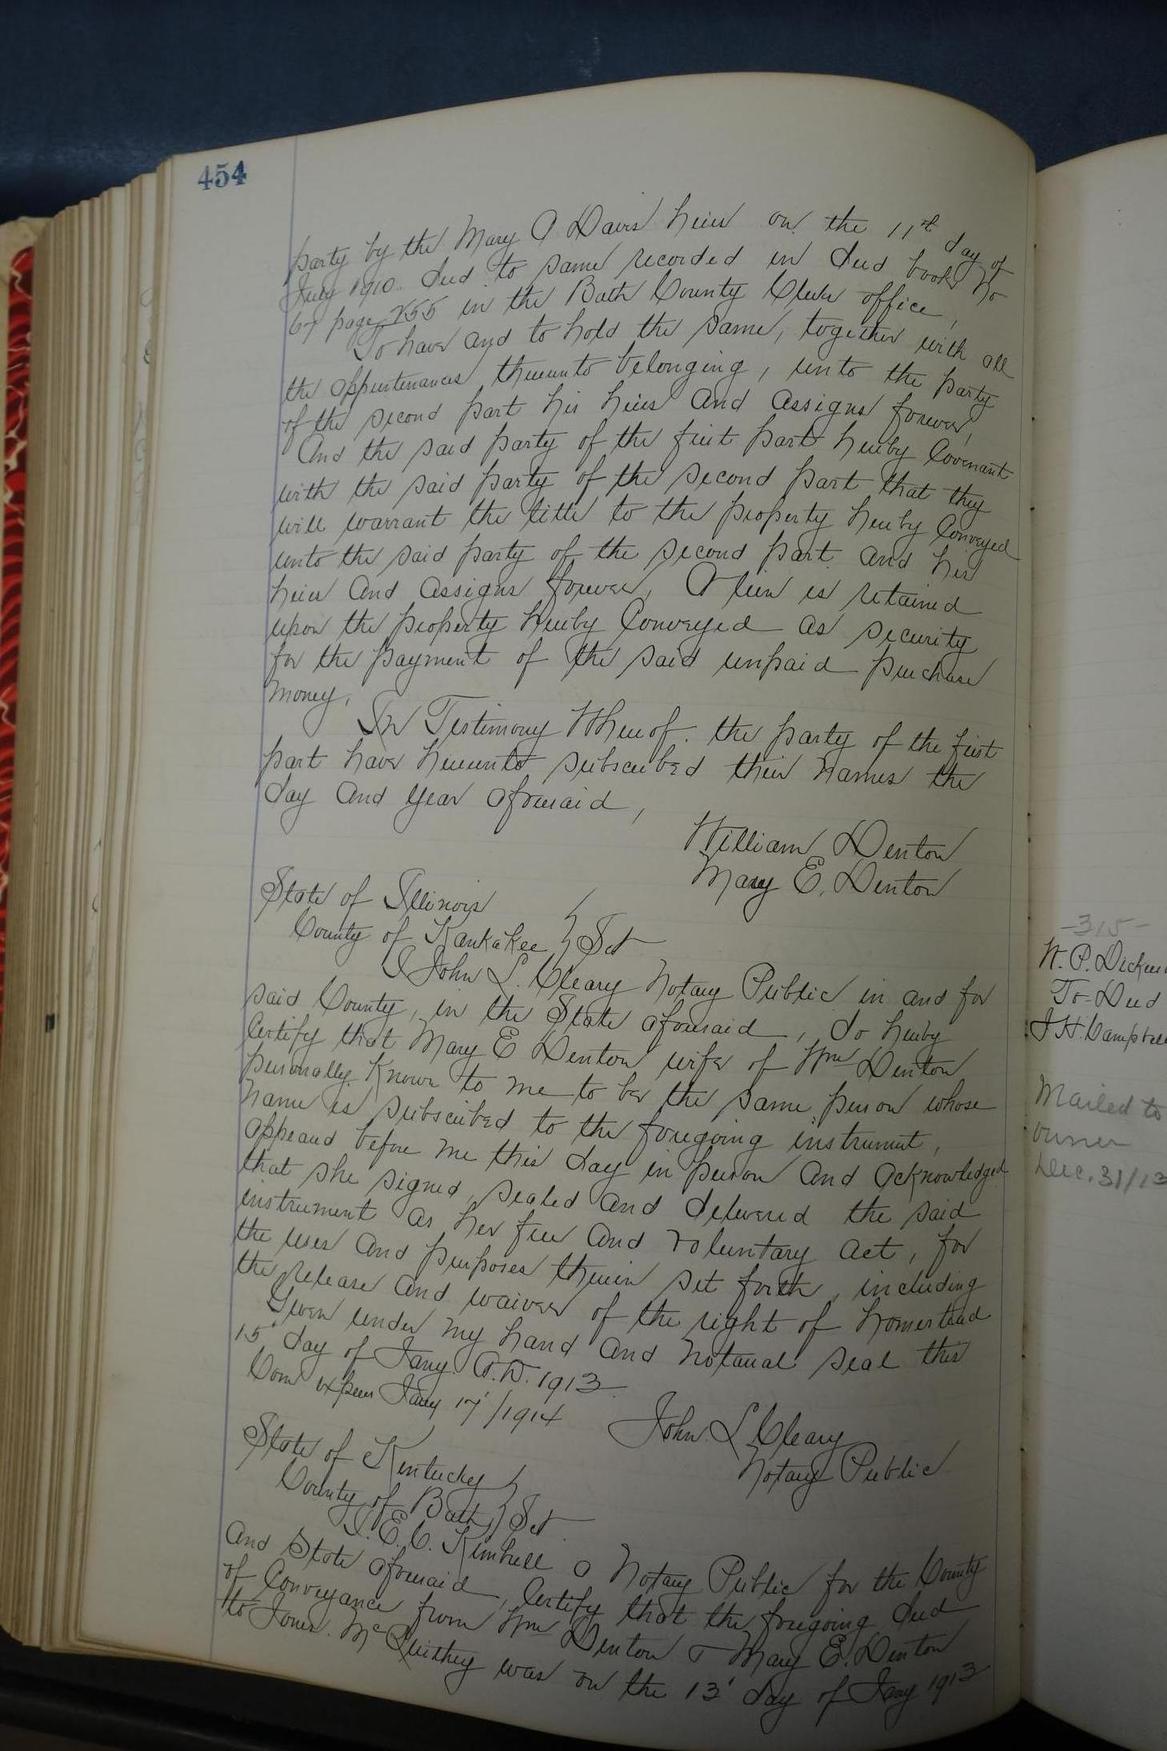 454
party by the Mary A Davis heirs on the 11st day of
July 1910. deed to same recorded in deed book No
67 page 255 in the Bath County Clerks office,
To have and to hold the same, together with all
the appurtenances thereunto belonging, unto the party
of the second part his heirs and assigns forever,
And the said party of the first part hereby Covenant
with the said party of the second part that they
will warrant the title to the property hereby Conveyed
unto the said party of the second part and his
heirs and assigns forever, A lien is retained
upon the property hereby Conveyed as security
for the payment of the said unpaid purchase
money,
In Testimony Whereof. the party of the first
part have hereunto subscribed their names the
day and year aforesaid,
William Denton
Mary E. Denton
State of Illinois
County of Kankakee } Sct
I John L. Cleary Notary Public in and for
said County, in the State aforesaid, do hereby
Certify that Mary E Denton wife of Wm Denton
personally known to me to be the same person whose
name is subscribed to the foregoing instrument,
appeared before me this day in person and acknowledged
that she signed, sealed and delivered the said
instrument as her free and voluntary act, for
the uses and purposes therein set forth, including
the release and waiver of the right of homestead
Given under my hand and notarial seal this
15' day of Jany A.D. 1913
Com expires Jany 17'/1914
John. L Cleary
Notary Public
State of Kentucky
County of Bath, } Sct
I. E. C. Kimbrell a Notary Public for the County
and State aforesaid, Certify that the foregoing deed
of Conveyance from Wm Denton & Mary E. Denton
to Jones. McQuithey was on the 13' day of Jany 1913
-315-
W. P. Dickers
To-Deed
J H. Campbell
Mailed to
owner
Dec. 31/13